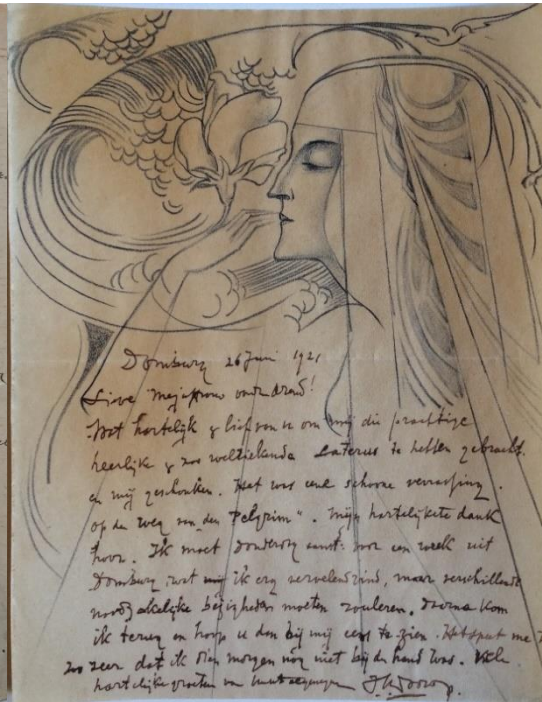 Domburg 26 Juni 1921
Lieve Mejuffrouw
Wat hartelijk & lief van u om mij die prachtige
heerlijke & zoo welriekende te hebben gebracht
en mij geschonken. Het was eene schoone verrassing.
op den weg van den "Pelgrim". Mijn hartelijkste dank
hoor. Ik moet Donderdag voor een week uit
Domburg, wat ik erg vervelend vind, maar verschillende
noodzakelijke bezigheden moeten. Daarna kom
ik terug en hoop u dan bij mij eens te zien. Het spijt me
zoo zeer dat ik dien morgen nog niet bij de hand was. Vele
hartelijke groeten van J. Th. Toorop.